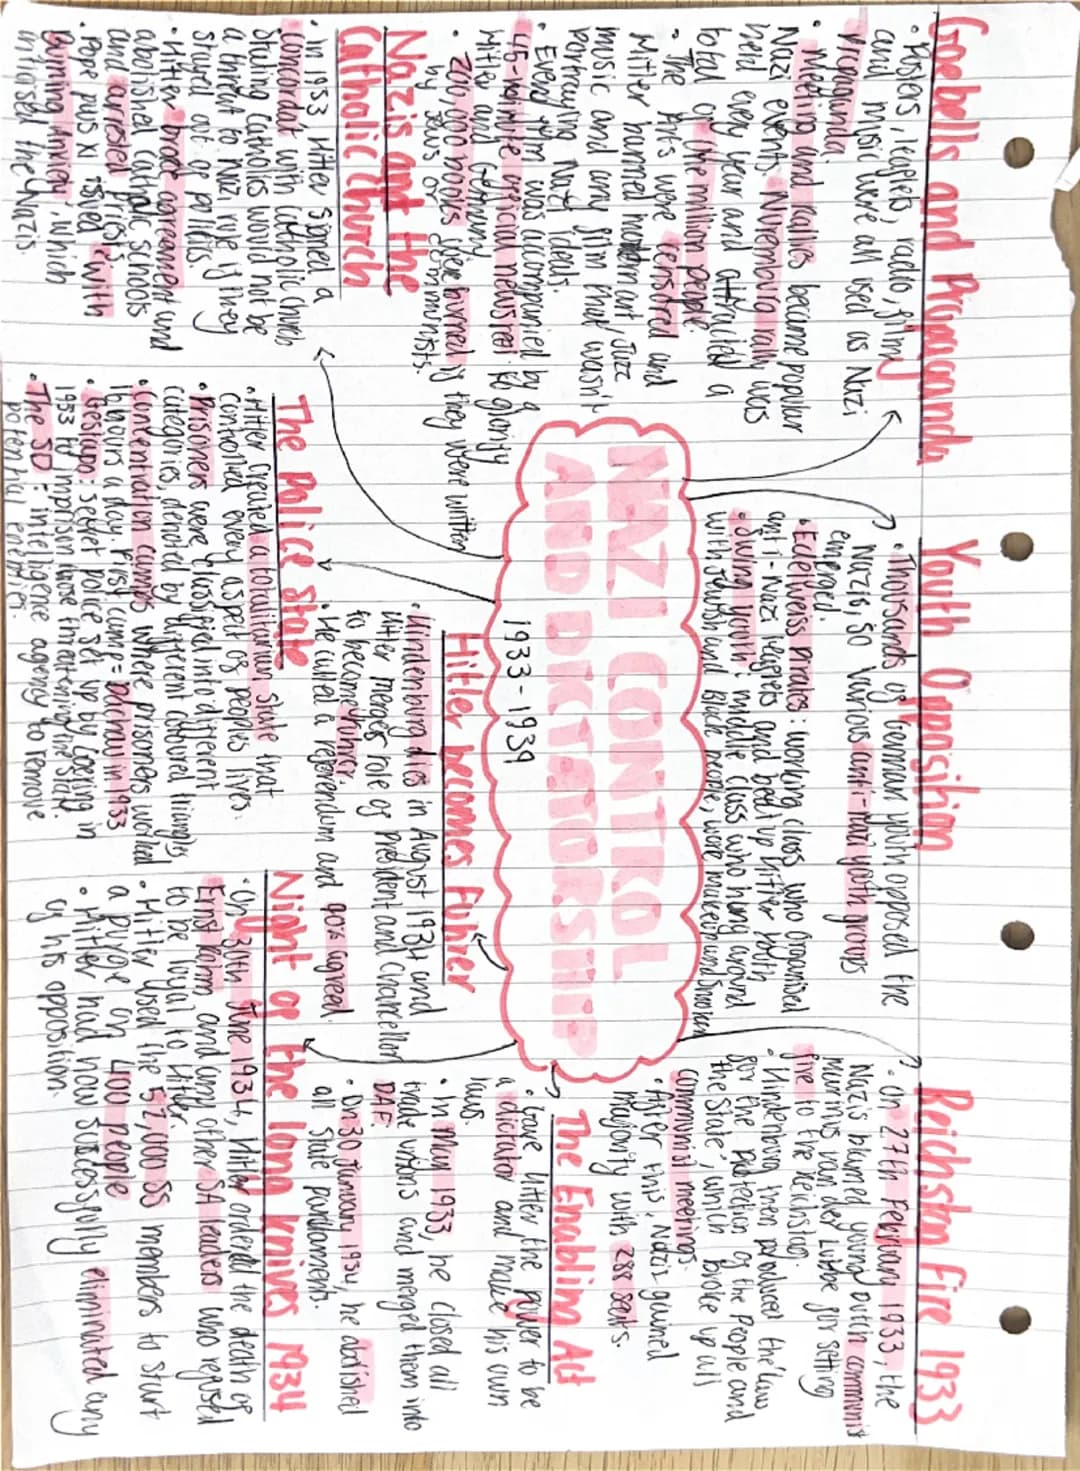 Goebells and Propaganda
• Posters, leaflets, radio, films
and music were all used as Nazi
Propaganda.
• Meeting and rallies became popular
Nazi events. Nuremburg rally was
held every year and attracted a
total of one million people
• The Arts were censored and
Hitler banned modern art, Jazz
music and any film that wasn't
portraying Nazi ideals.
• Every film was accompanied by a
45-minute official newsreel to glorify
Hitler and Germany.
• 20,000 books were burned if they were written
by Jews or communists.
Nazis and the
Catholic Church
• In 1933 Hitler signed a
concordat with Catholic church
stating Catholics would not be
a threat to Nazi rule if they
stayed out of politics
• Hitler broke agreement and
abolished Catholic schools
and arrested priests
• Pope pius XI issued 'with
Burning Anxiety', which
criticised the Nazis.
Youth Opposition
• Thousands of German youth opposed the
Nazis, so various anti-nazi youth groups
emerged.
• Edelweiss pirates: working class who organised
anti-Nazi leaflets and beat up hitler youth
• Swing youth: middle class who hung around
with Jewish and Black people, wore makeup and smoked
NAZI CONTROL
AND DICTATORSHIP
1933-1939
Hitler becomes Führer
• Hindenburg dies in August 1934 and
Hitler merges role of president and chancellor
to become Führer.
• He called a referendum and 90% agreed.
The Police State
• Hitler created a totalitarian state that
controlled every aspect of peoples lives.
• Prisoners were classified into different
categories, denoted by different coloured triangles
• Concentration camps where prisoners worked
hours a day. First camp = Dachau in 1933
• Gestapo: secret police set up by Goering in
1933 to imprison those threatening the state.
• The SD: intelligence agency to remove
potential enemies.
Reichstag Fire 1933
• On 27th February 1933, the
Nazis blamed young dutch communist
marinus van der Lubbe for setting
fire to the Reichstag.
• Hindenburg then produced the 'law
for the protection of the People and
the State', which broke up all
communist meetings.
• After this, Nazis gained
majority with 288 seats.
The Enabling Act
• Gave Hitler the power to be
a dictator and make his own
laws.
• In May 1933, he closed all
trade unions and merged them into
DAF.
• On 30 January 1934, he abolished
all State parliaments.
Night of the long knives 1934
• On 30th June 1934, Hitler ordered the death of
Ernst Röhm and any other SA leaders who refused
to be loyal to Hitler.
• Hitler used the 52,000 SS members to start
a purge on 400 people
• Hitler had now successfully eliminated any
of his opposition.